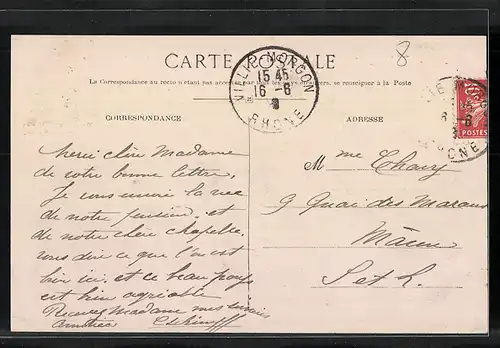 8
CARTE POSTALE
La Correspondance au recto n'étant pas acceptée par tous les pays étrangers, se renseigner à la Poste
VILLIÉ-MORGON
15 45
16 - 6
RHONE
POSTES
CORRESPONDANCE
ADRESSE
Merci chère Madame
de votre bonne lettre,
Je vous envoie la vue
de notre pension et
de notre chère chapelle,
vous dire ce que l'on est
bien ici, et ce beau pays
est bien agréable
Recevez Madame mes
Mme
9 Quai des
Mâcon
S et L.